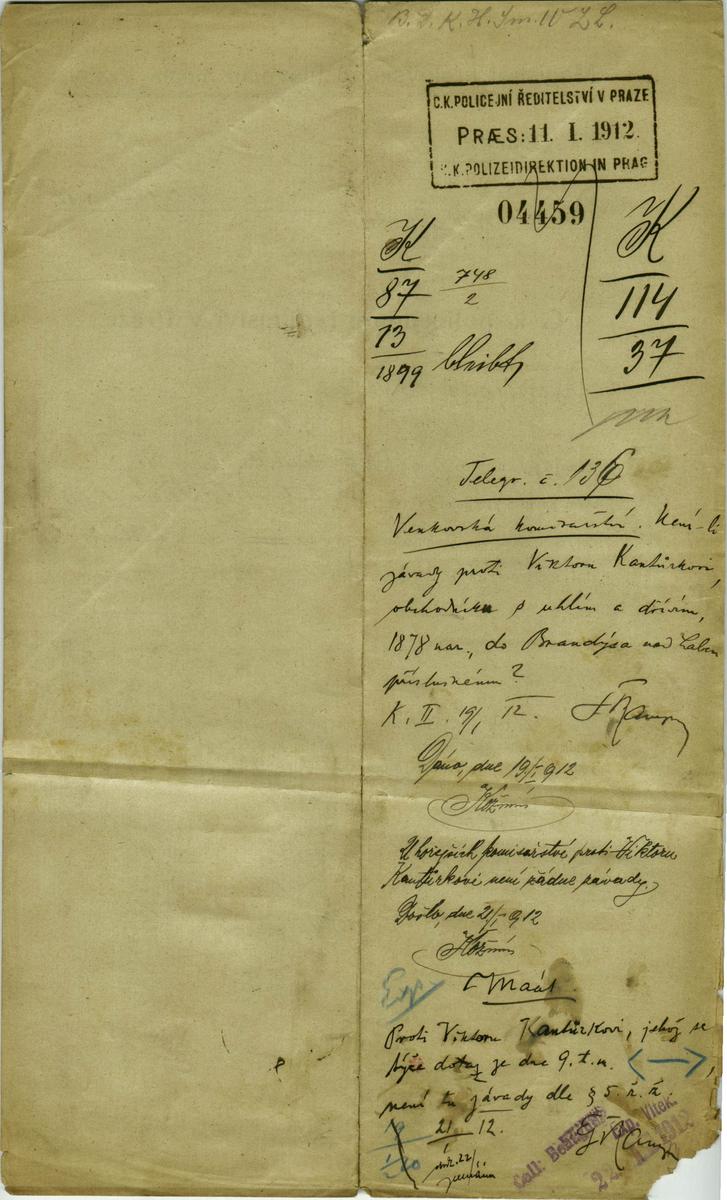 B. D. K. H. Sm. IV Z L.
C.K. POLICEJNÍ ŘEDITELSTVÍ V PRAZE
PRÆS: 11. I. 1912.
K.K. POLIZEIDIREKTION IN PRAG
04459
K
87
13
1899
748
2
bleibt
K
114
37
Telegr. č. 136
Venkovská komisařství. Není-li
závady proti Viktoru Kantůrkovi,
obchodníku s uhlím a dřívím,
1878 nar., do Brandýsa nad Labem
příslušnému?
K. II. 19/1 12.
Dáno, dne 19/I 912
U hořejších komisařství proti Viktoru
Kantůrkovi není žádné závady.
Došlo, dne 21/I 912
Proti Viktoru Kantůrkovi, jehož se
týče dotaz ze dne 9. t. m.
není tu závady dle § 5. ž. ř.
21 12.
Coll:
Exp. Vítek.
1912